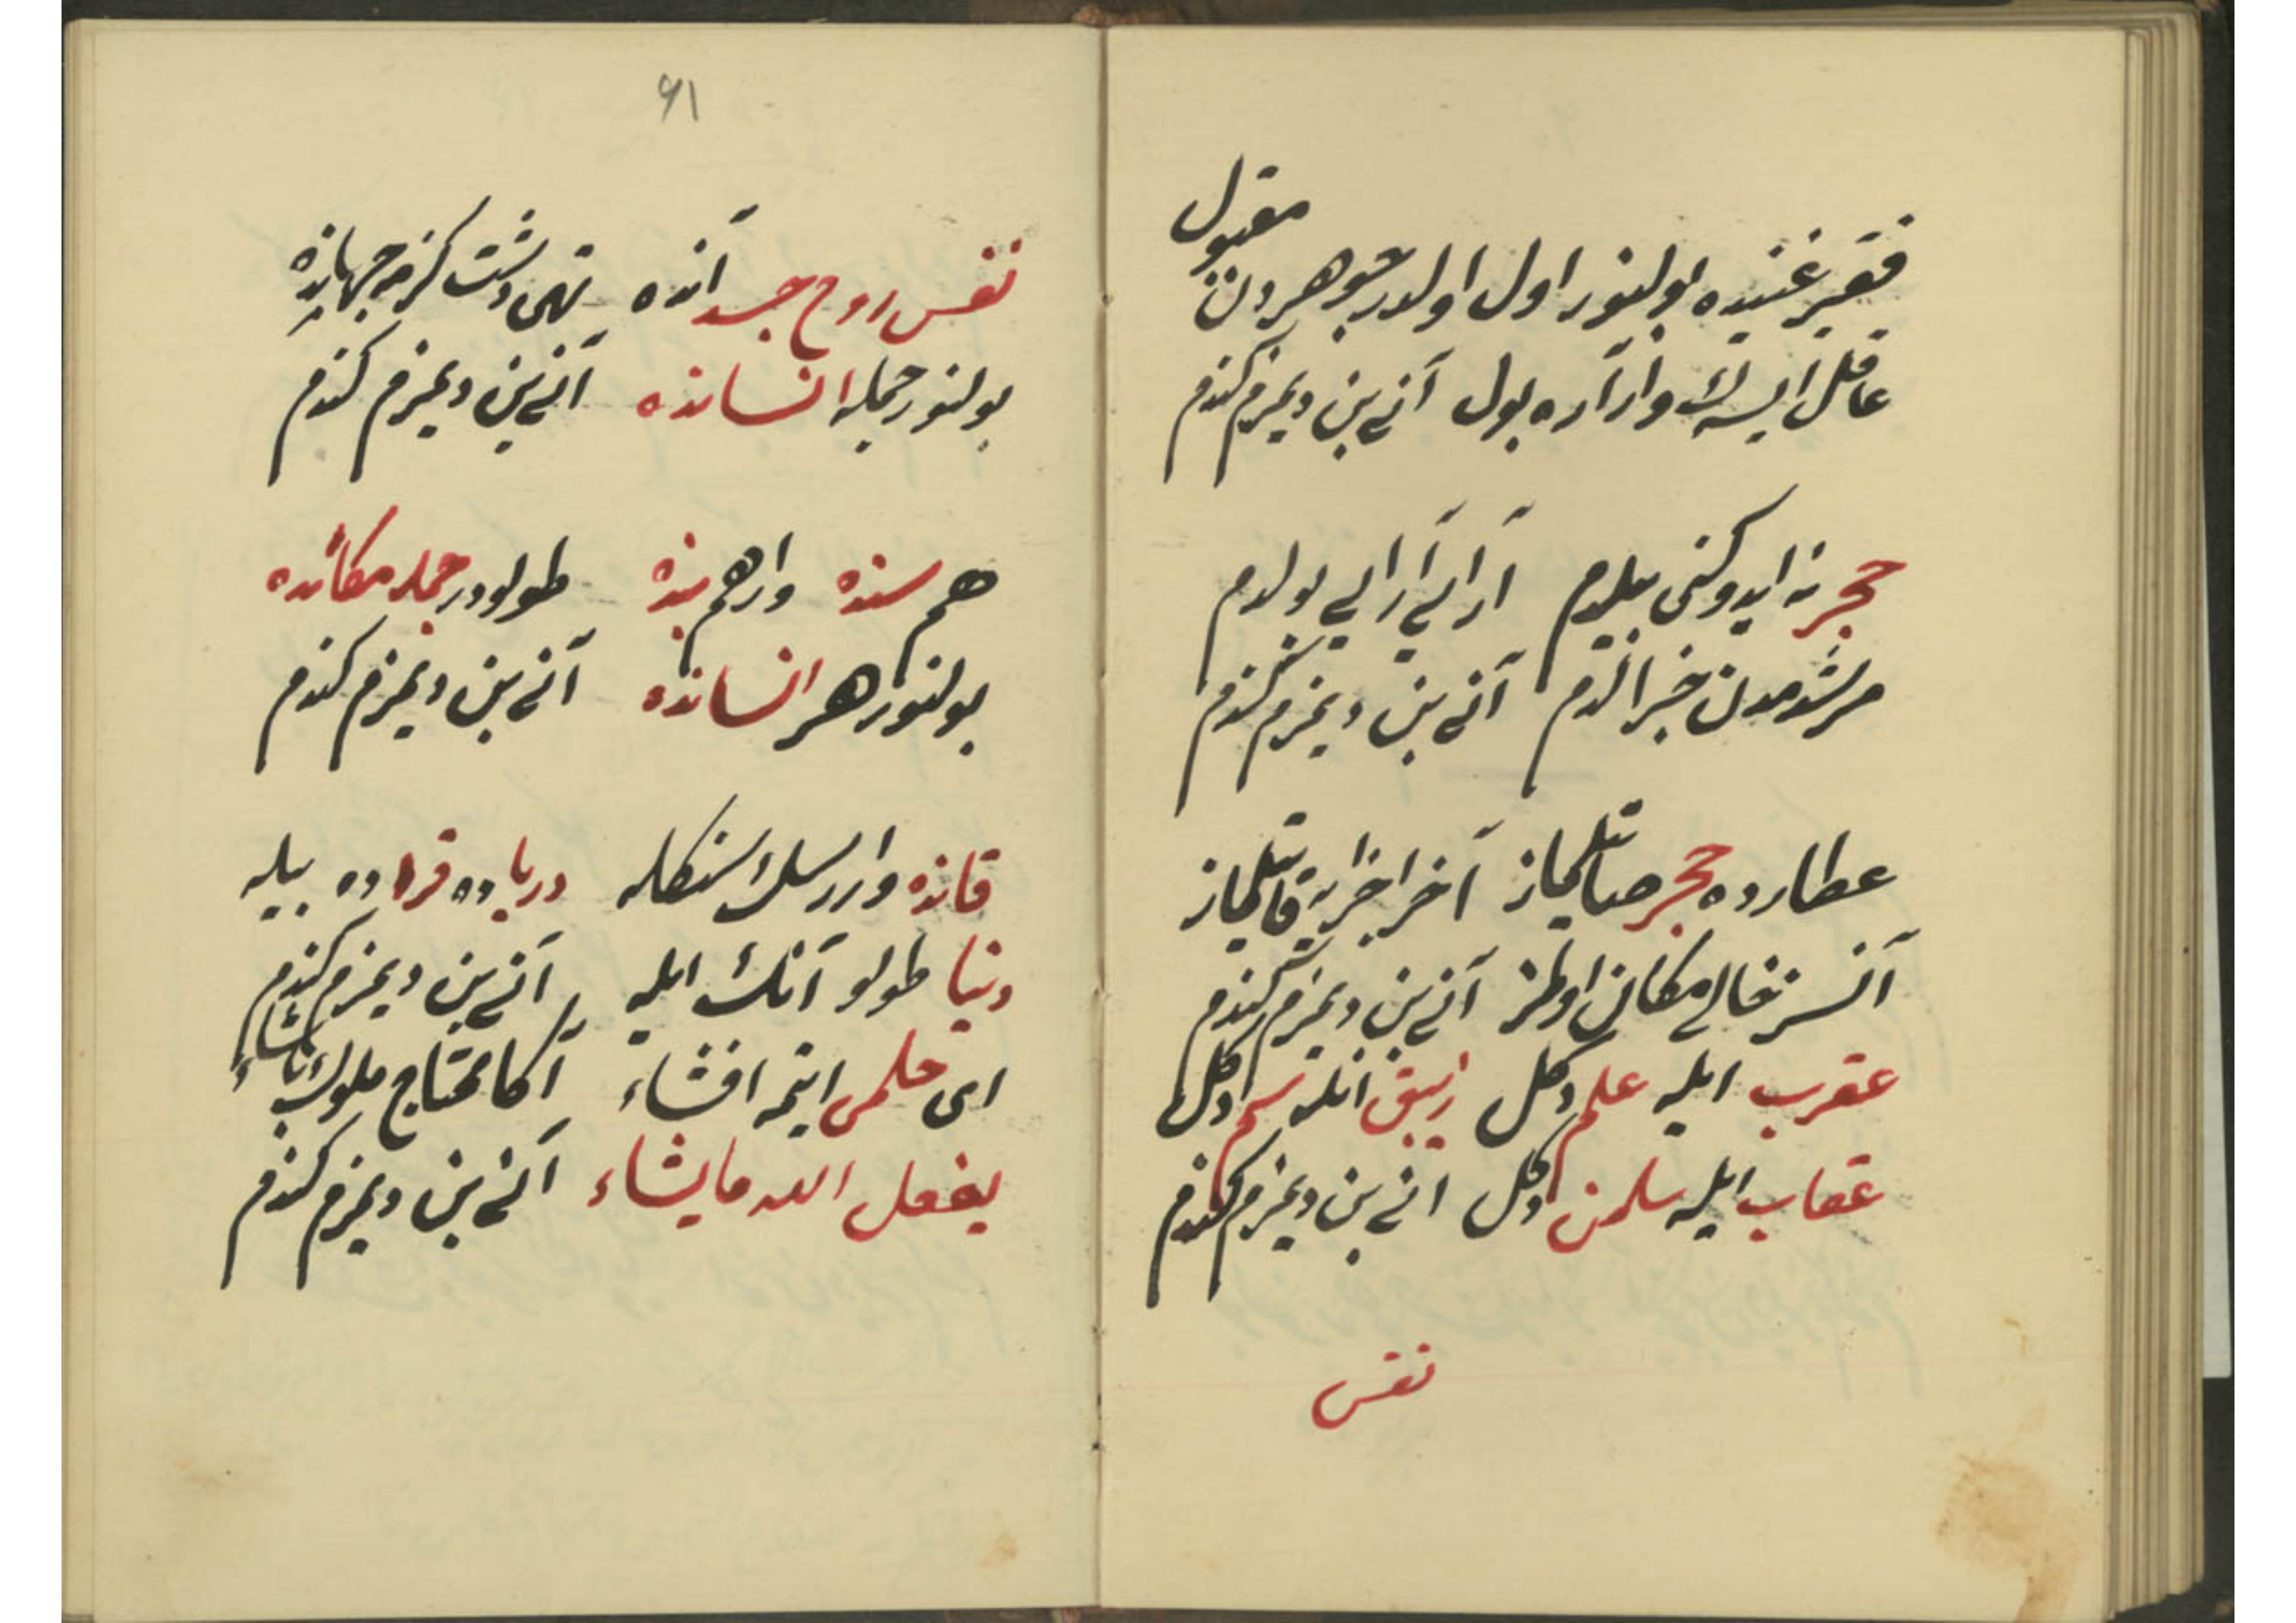 مقبول
فقير غنيده بولنور اول اولدر جوهردن
عاقل ايسه‌ك وار آره بول آنى بن ديمزم كندم
حجر نه ايدوكنى بيلدم آرايى آرايى بولدم
مرشدمدن خبر الدم آنى بن ديمزم كندم
عطارده حجر صاتلماز آخر اجزايه قاتلماز
آنسز خالى مكان اولمز آنى بن ديمزم كندم
عقرب ايله علم دكل زيبق ايله سم دكل
عقاب ايله سلمن دكل انى بن ديمزم كندم
نفس
٩١
نفس روح جسد انده تهى دشت كزمه جهانده
بولنور جمله انسانده آنى بن ديمزم كندم
هم سنده وار هم بنده طولودر جمله مكانده
بولنور هر انسانده آنى بن ديمزم كندم
قانده وارر سك سنكله درياده قراده بيله
دنيا طولو آنك ايله آنى بن ديمزم كندم
اى حلمى ايتمه افشاء آكا محتاج ملوك پاشاء
يفعل الله مايشاء آنى بن ديمزم كندم